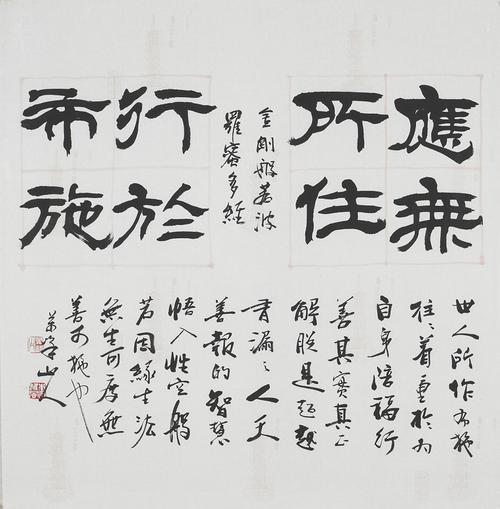 應無
所住
金剛般若波
羅蜜多經
行於
布施
世人所作布施
往々着重於为
自身培福行
善其實真正
解脫是超越
有漏之人天
善報的智慧
悟入性空般
若因緣生法
無生可度無
善可施也
山人